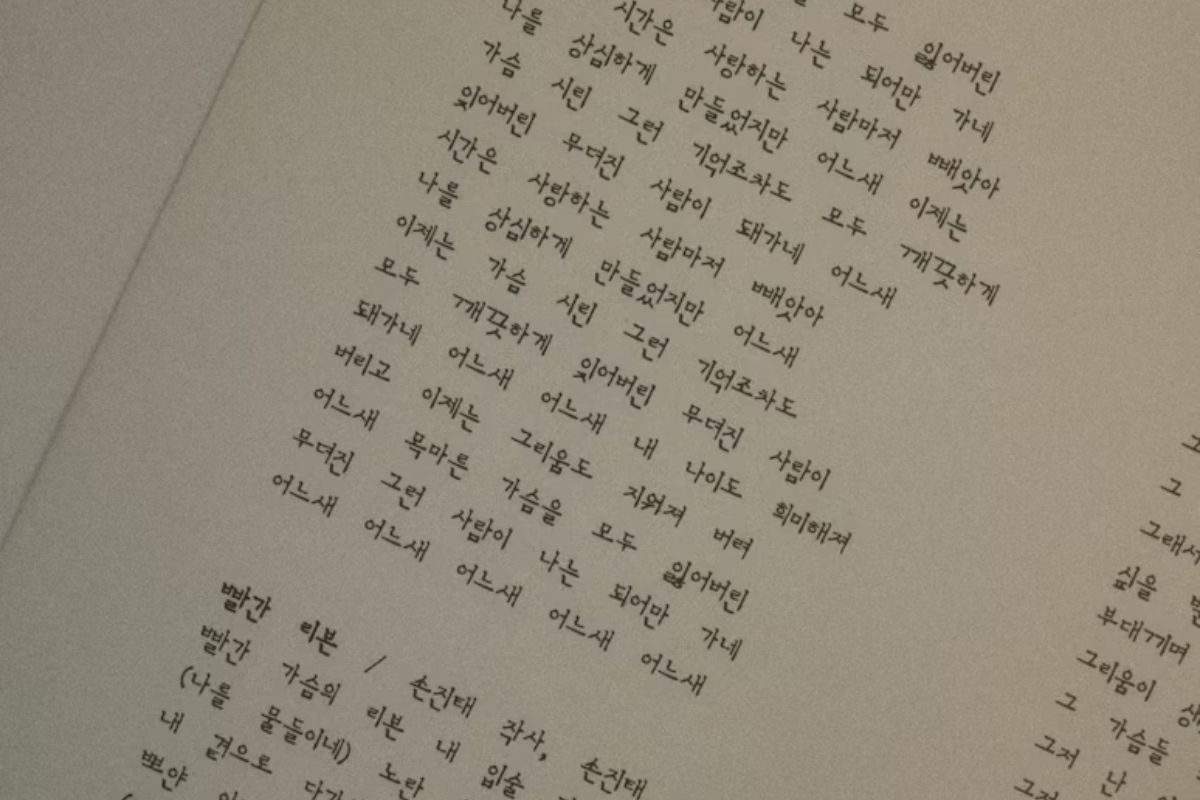 모두 잃어버린
사람이 나는 되어만 가네
시간은 사랑하는 사람마저 빼앗아
나를 상심하게 만들었지만 어느새 이제는
가슴 시린 그런 기억조차도 모두 깨끗하게
잊어버린 무뎌진 사람이 돼가네 어느새
시간은 사랑하는 사람마저 빼앗아
나를 상심하게 만들었지만 어느새
이제는 가슴 시린 그런 기억조차도
모두 깨끗하게 잊어버린 무뎌진 사람이
돼가네 어느새 어느새 내 나이도 희미해져
버리고 이제는 그리움도 지워져 버려
어느새 목마른 가슴을 모두 잃어버린
무뎌진 그런 사람이 나는 되어만 가네
어느새 어느새 어느새 어느새 어느새
빨간 리본 / 손진태 작사, 손진태
빨간 가슴의 리본 내 입술
(나를 물들이네) 노란
내 곁으로
뽀얀
그
그래서
싶을
부대끼며
그리움이
그 가슴들
그저 난